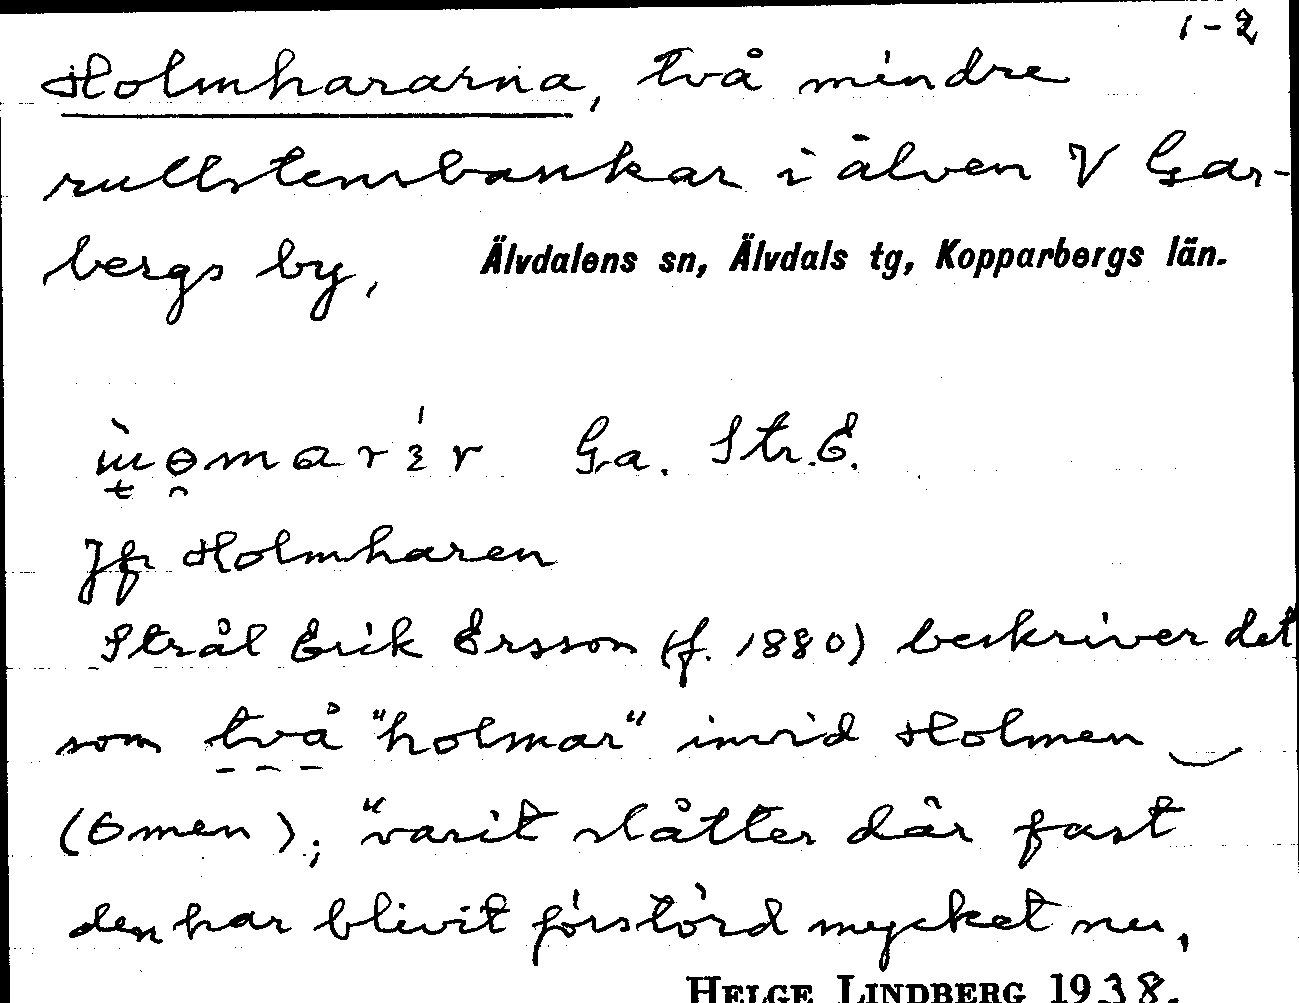 1-2
Holmhararna, två mindre
rullstensbankar i älven V Gar-
bergs by, Älvdalens sn, Älvdals tg, Kopparbergs län.
Ga. Str. E.
Jfr Holmharen
Strål Erik Ersson (f. 1880) beskriver det
som två "holmar" invid Holmen
(Omen); "varit slåtter där fast
den har blivit förstörd mycket nu,
HELGE LINDBERG 1938.